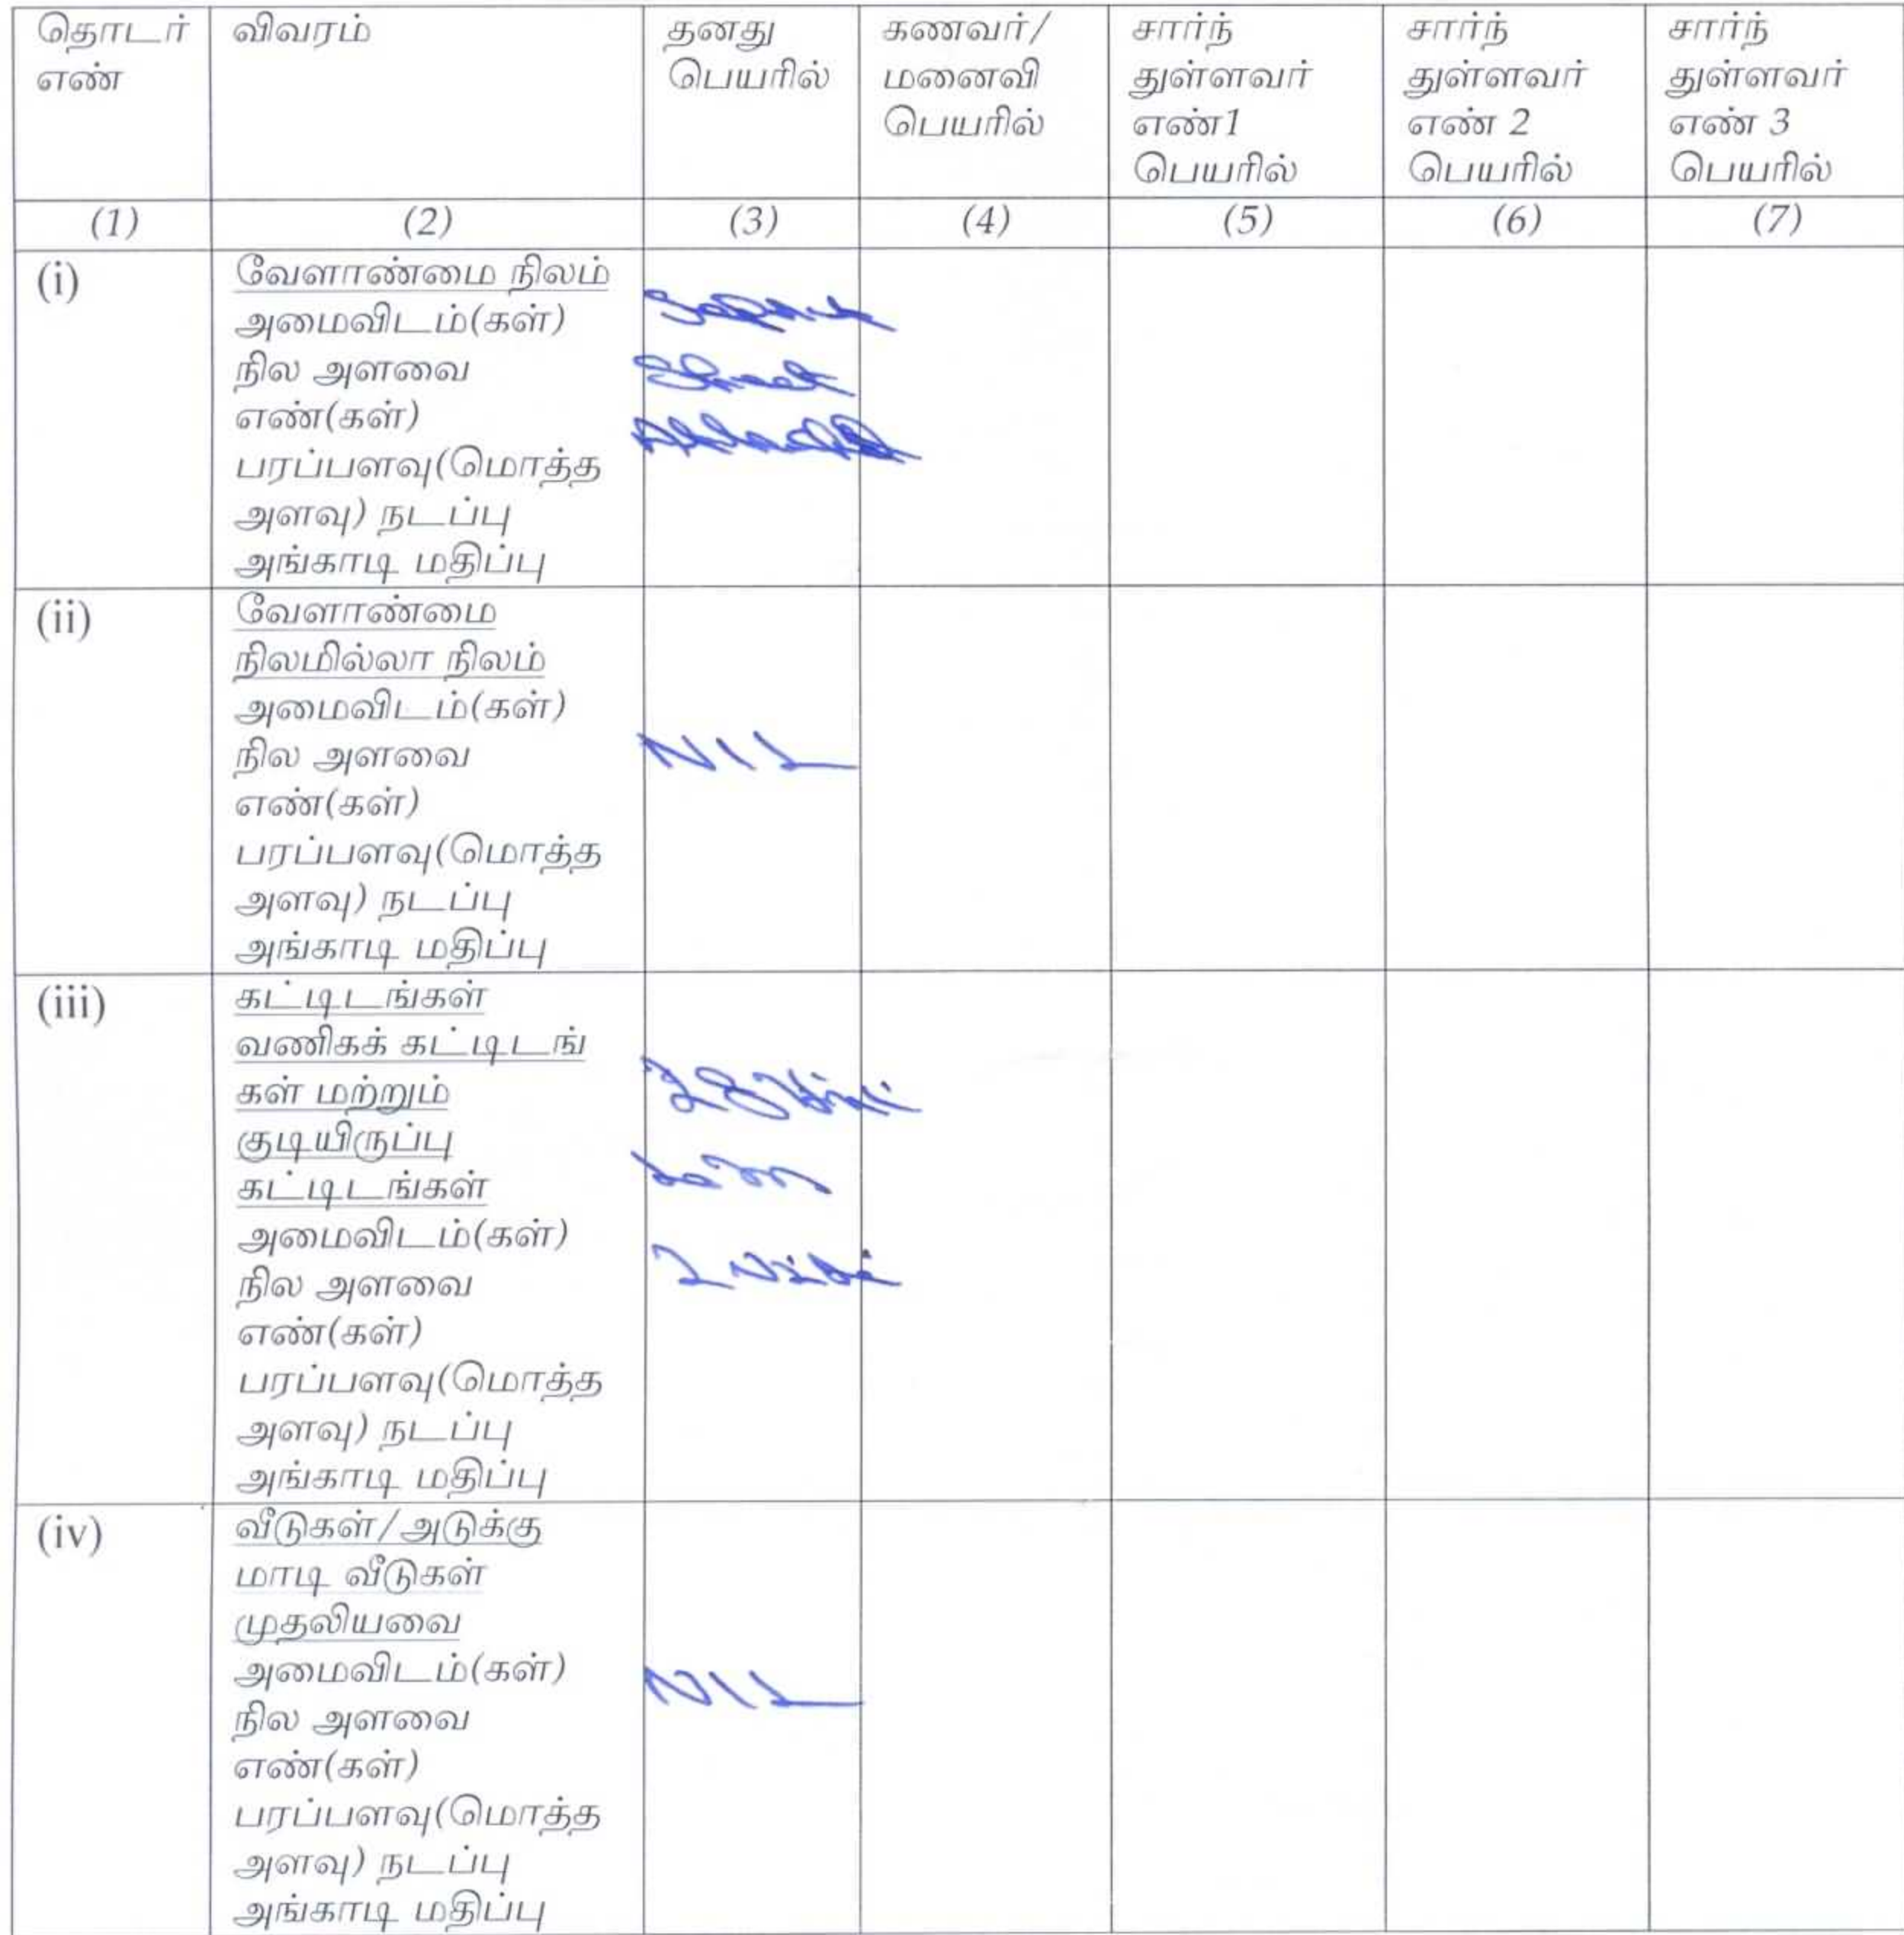 தொடர்
எண்
விவரம்
தனது
பெயரில்
கணவர்/
மனைவி
பெயரில்
சார்ந்
துள்ளவர்
எண்1
பெயரில்
சார்ந்
துள்ளவர்
எண் 2
பெயரில்
சார்ந்
துள்ளவர்
எண் 3
பெயரில்
(1) (2) (3) (4) (5) (6) (7)
(i)
வேளாண்மை நிலம்
அமைவிடம்(கள்)
நில அளவை
எண்(கள்)
பரப்பளவு(மொத்த
அளவு) நடப்பு
அங்காடி மதிப்பு
(ii)
வேளாண்மை
நிலமில்லா நிலம்
அமைவிடம்(கள்)
நில அளவை
எண்(கள்)
பரப்பளவு(மொத்த
அளவு) நடப்பு
அங்காடி மதிப்பு
NIL
(iii)
கட்டிடங்கள்
வணிகக் கட்டிடங்
கள் மற்றும்
குடியிருப்பு
கட்டிடங்கள்
அமைவிடம்(கள்)
நில அளவை
எண்(கள்)
பரப்பளவு(மொத்த
அளவு) நடப்பு
அங்காடி மதிப்பு
(iv)
வீடுகள்/அடுக்கு
மாடி வீடுகள்
முதலியவை
அமைவிடம்(கள்)
நில அளவை
எண்(கள்)
பரப்பளவு(மொத்த
அளவு) நடப்பு
அங்காடி மதிப்பு
NIL